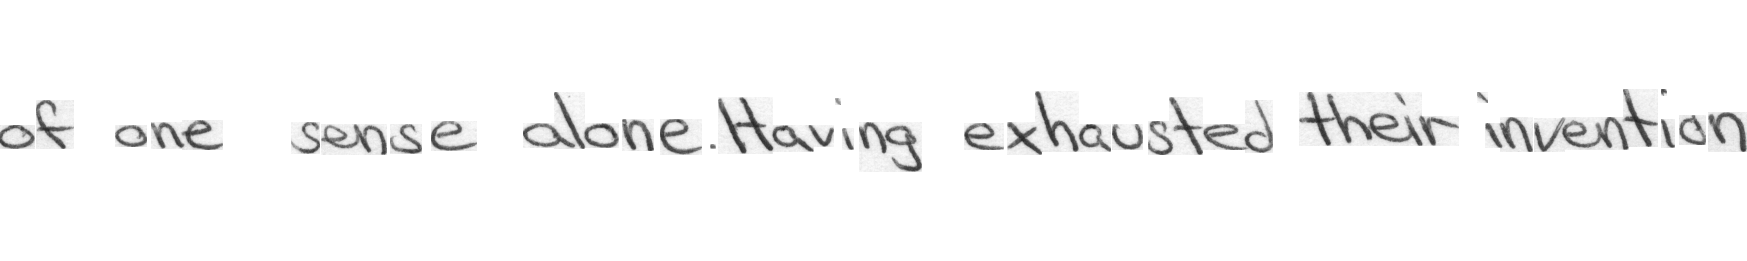 of one sense alone. Having exhausted their invention